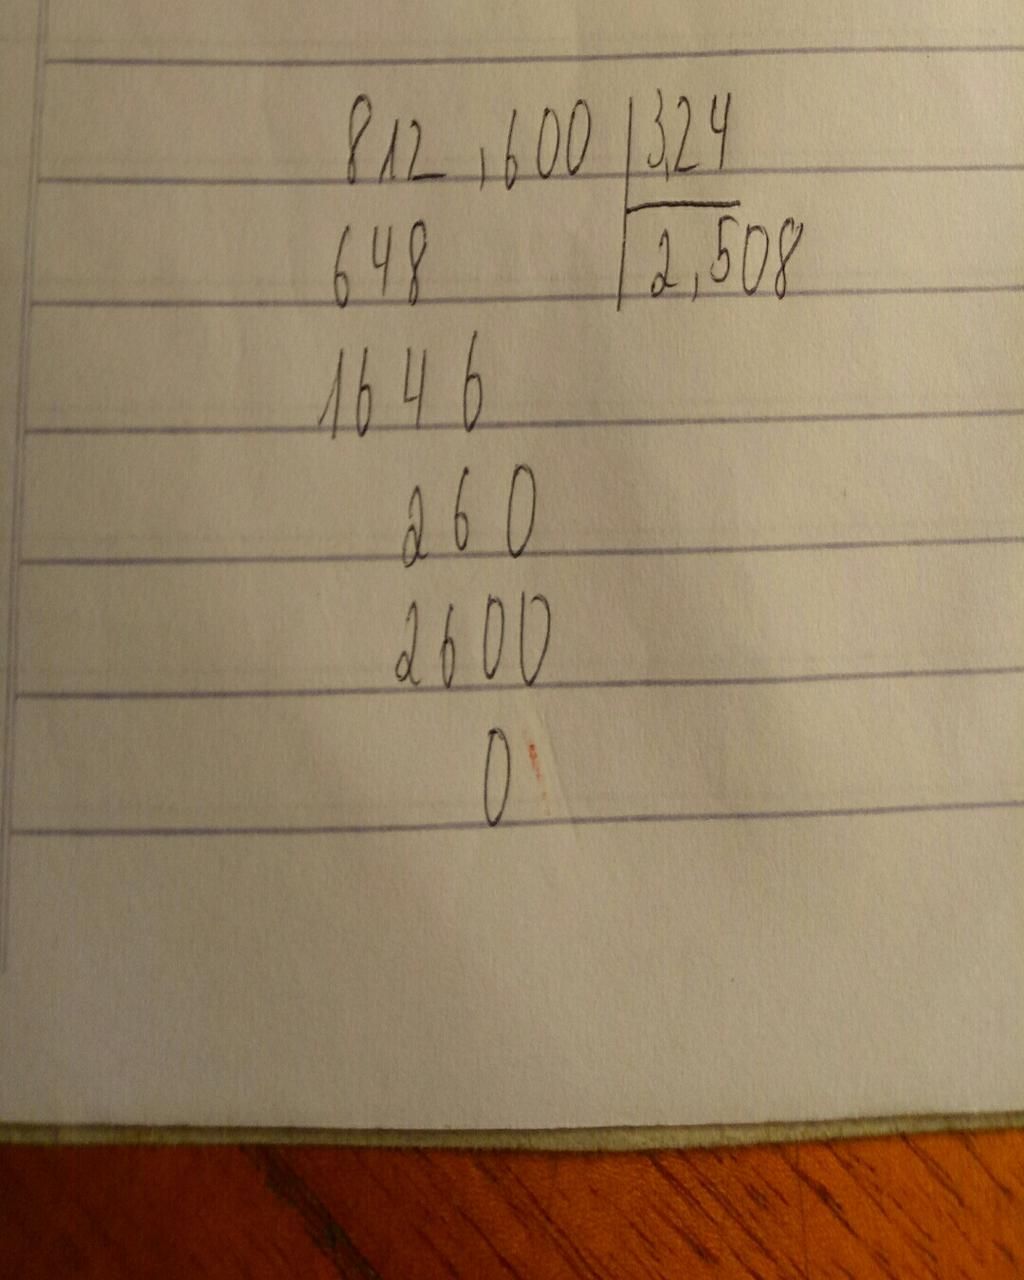 812,600 3,24
648 2,508
1646
260
2600
0